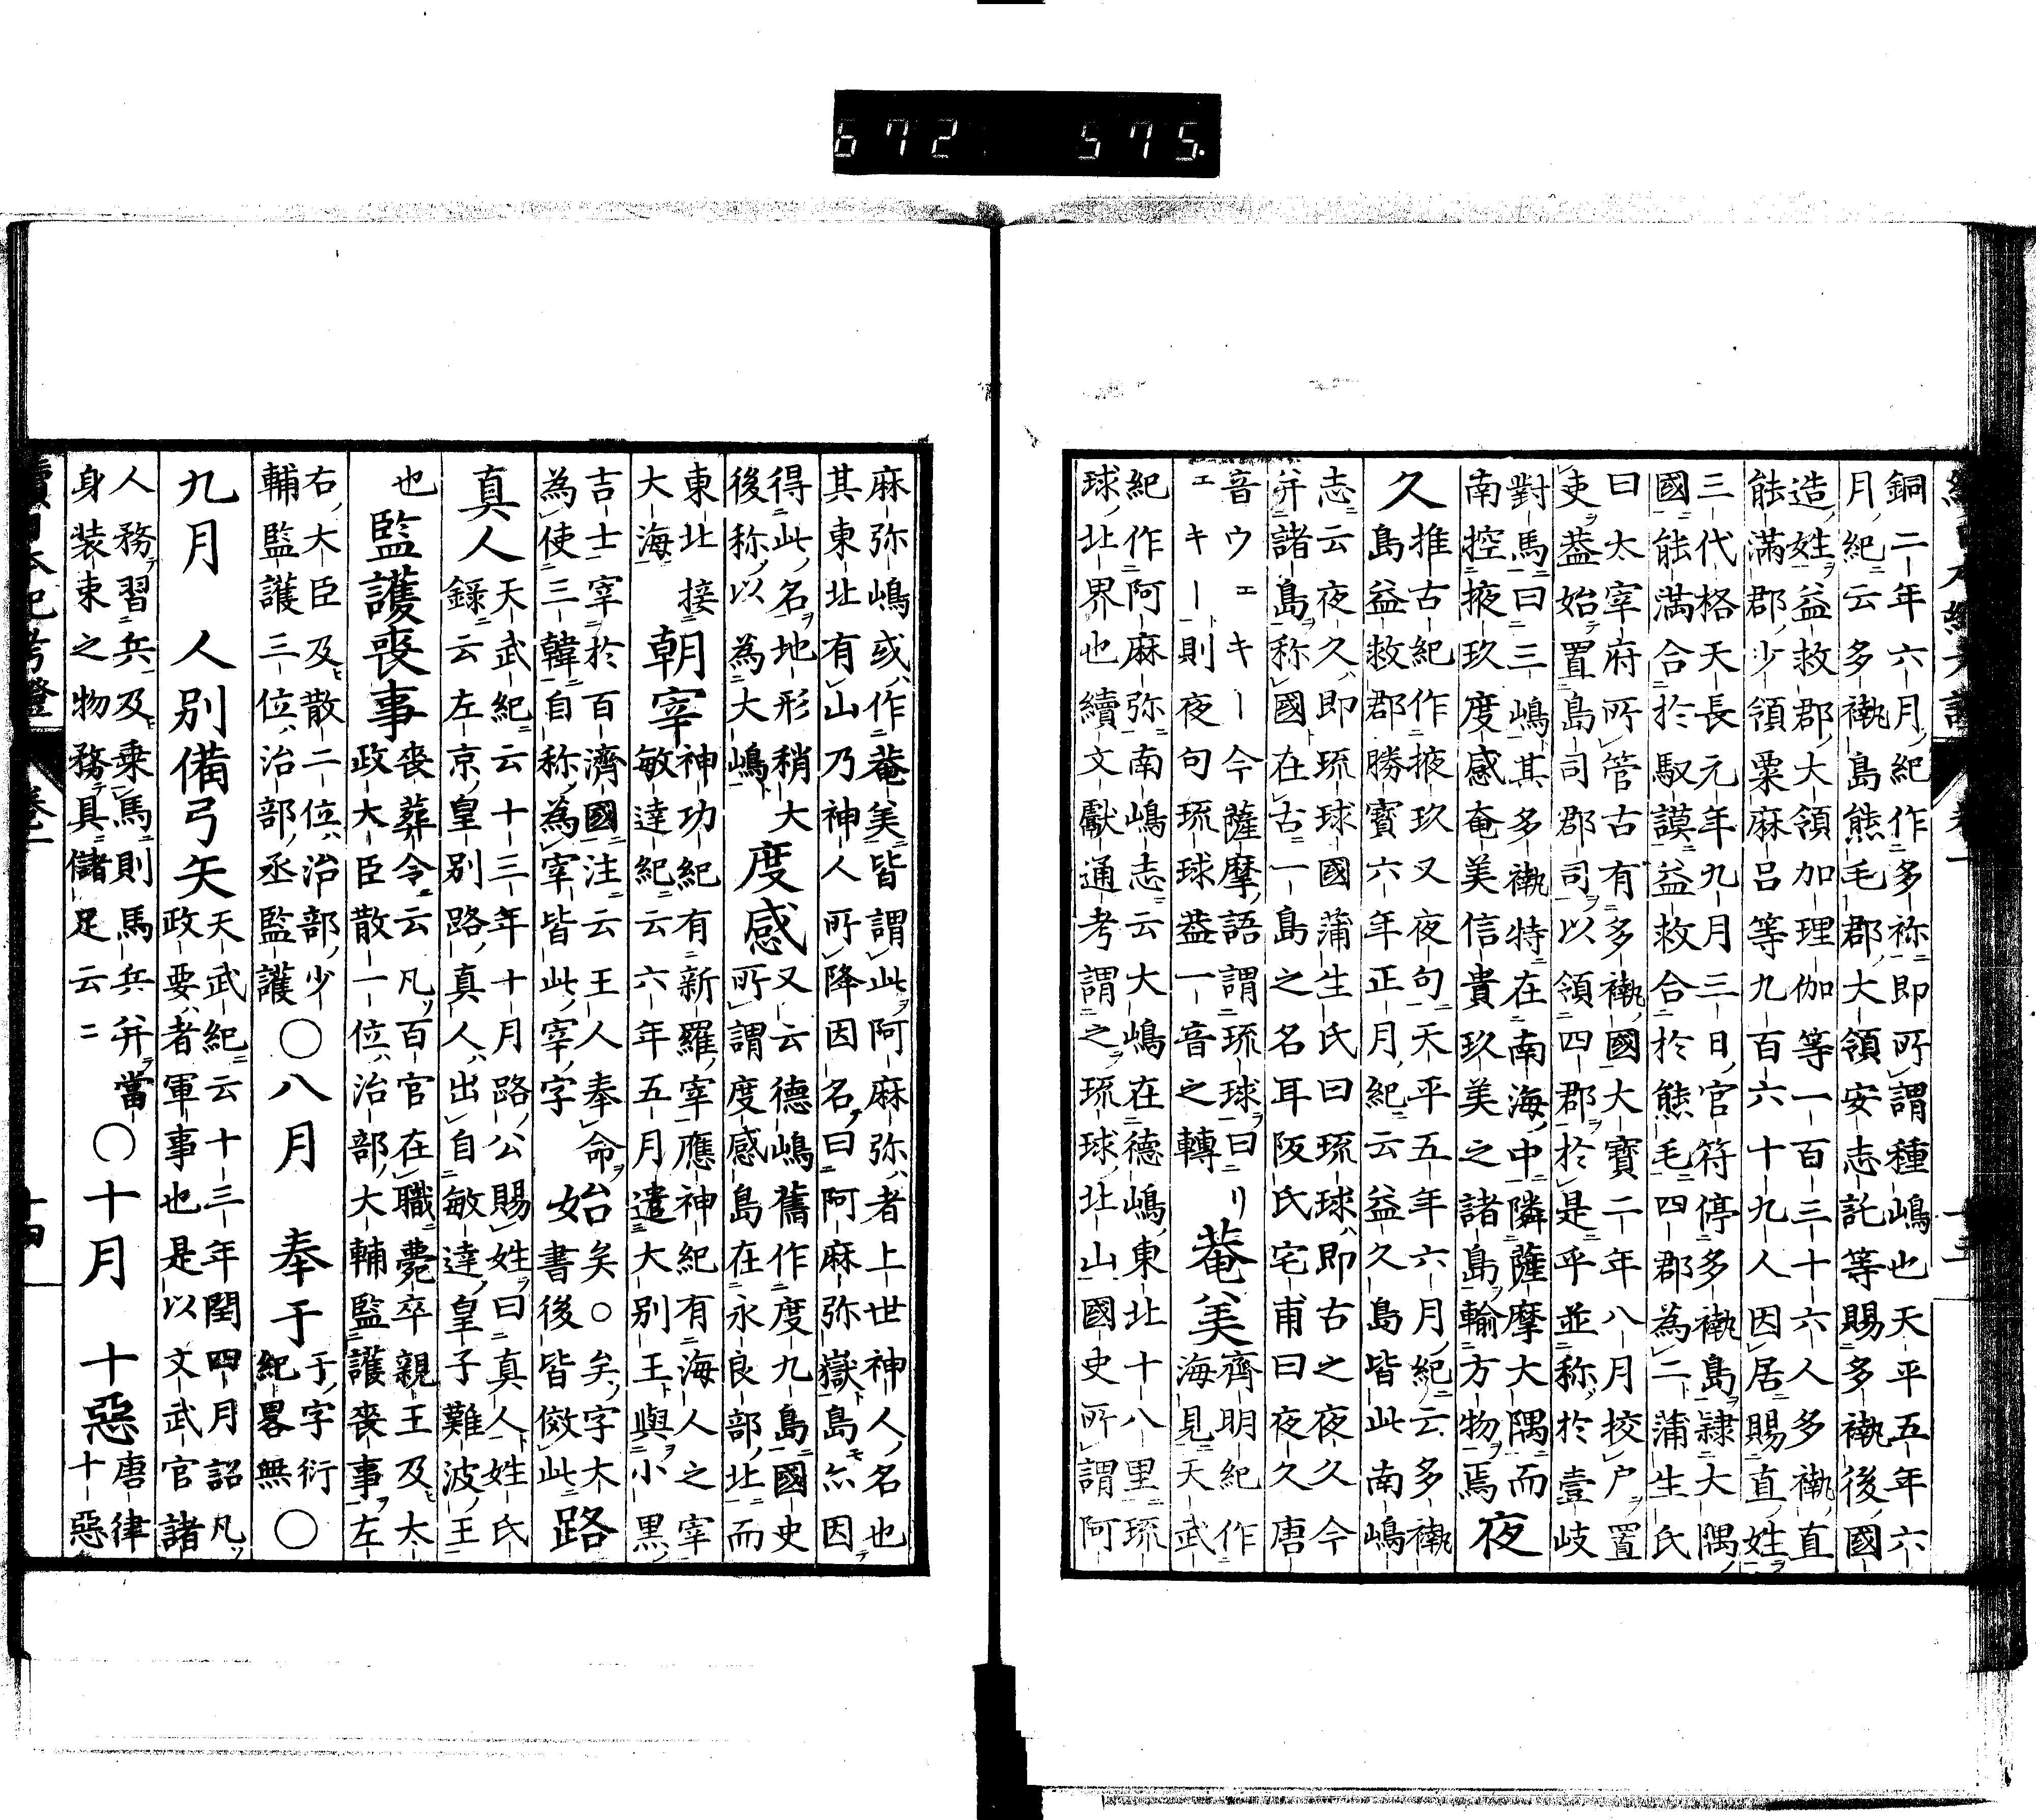 672 575.
銅二年六月ノ紀作多祢即所謂種嶋也天平五年六
月ノ紀云多褹島熊毛郡大領安志託等賜多褹後國
造姓益救郡大領加理伽等一百三十六人多褹直
能滿郡少領粟麻呂等九百六十九人因居賜直姓
三代格天長元年九月三日官符停多褹島隷大隅
國能滿合於馭謨益救合於熊毛四郡為二蒲生氏
曰太宰府所管古有多褹國大寶二年八月挍户置
吏葢始置島司郡司以領四郡於是乎並称於壹岐
對馬曰三嶋其多褹特在南海中隣薩摩大隅而
南控掖玖度感奄美信貴玖美之諸島輸方物焉夜
久推古紀作掖玖又夜句天平五年六月紀云多褹
島益救郡勝寶六年正月紀云益久島皆此南嶋
志云夜久即琉球國蒲生氏曰琉球即古之夜久今
并諸島称國在古一島之名耳阪氏宅甫曰夜久唐
音ウェキー今薩摩語謂琉球曰リ
ェキー則夜句琉球葢一音之轉菴美齊明紀作
海見天武
紀作阿麻弥南嶋志云大嶋在德嶋東北十八里琉
球北界也續文獻通考謂之琉球北山國史所謂阿
麻弥嶋或作菴美皆謂此阿麻弥者上世神人名也
其東北有山乃神人所降因名曰阿麻弥嶽島亦因
得此名地形稍大
後称以為大嶋度感又云德嶋舊作度九島國史
所謂度感島在永良部北而
東北接
大海朝宰神功紀有新羅宰應神紀有海人之宰
敏達紀云六年五月遣大別王與小黒
吉士宰於百濟國注云王人奉命
為使三韓自称為宰皆此宰字始矣○矣字本
書後皆傚此路
真人天武紀云十三年十月路公賜姓曰真人姓氏
錄云左京皇別路真人出自敏達皇子難波王
也監護喪事喪葬令云凡百官在職薨卒親王及太
政大臣散一位治部大輔監護喪事左
右大臣及散二位治部少
輔監護三位治部丞監護○八月奉于于字衍
紀畧無○
九月人別備弓矢天武紀云十三年閏四月詔凡
政要者軍事也是以文武官諸
人務習兵及乗馬則馬兵并當
身装束之物務具儲足云云○十月十惡唐律
十惡
十四